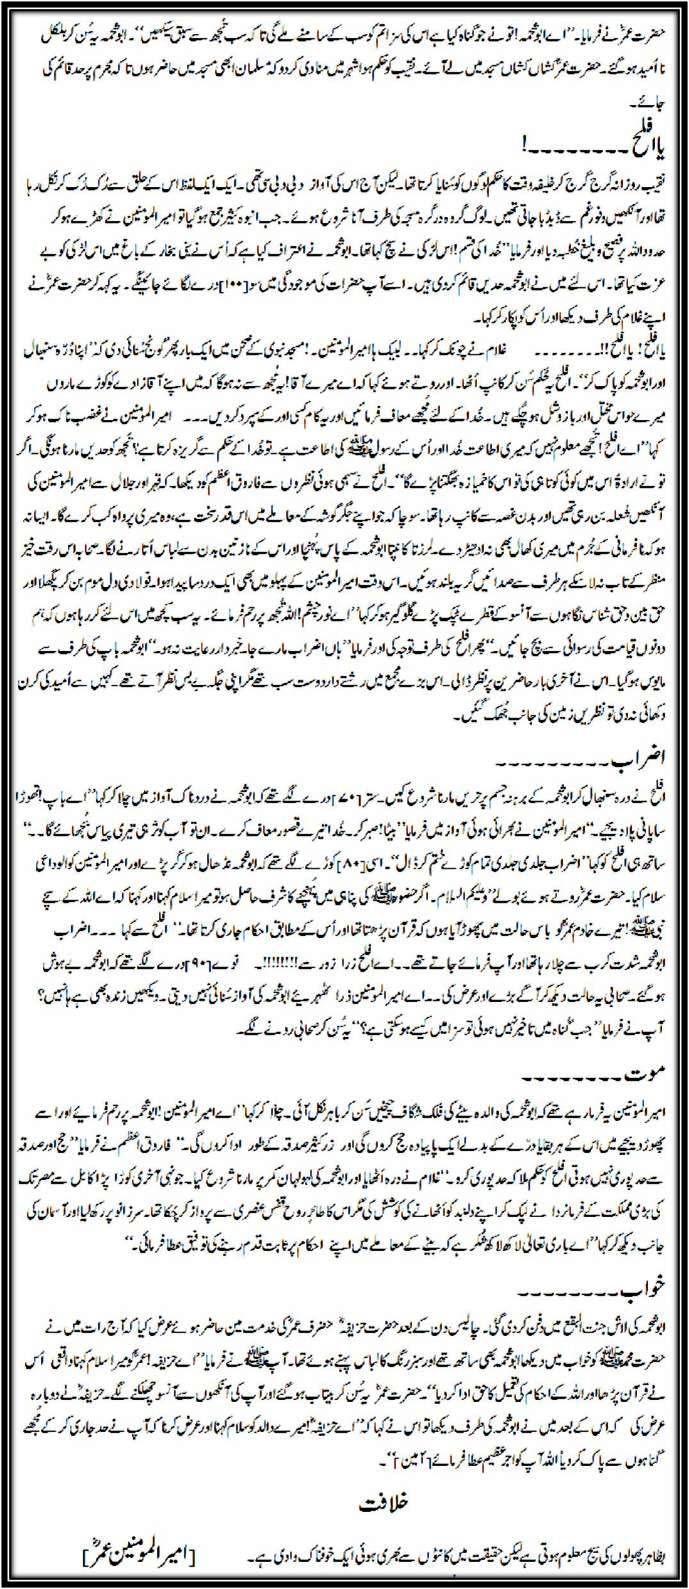 حضرت عمرؓ نے فرمایا۔ "اے ابو شحمہ! تو نے جو گناہ کیا ہے اس کی سزا تم کو سب کے سامنے ملے گی تاکہ سب تُجھ سے سبق سیکھیں"۔ ابو شحمہ یہ سُن کر بالکل
نا اُمید ہو گئے۔ حضرت عمرؓ کشاں کشاں مسجد میں لے آئے۔ نقیب کو حکم ہوا شہر میں منادی کر دو کہ مسلمان ابھی مسجد میں حاضر ہوں تا کہ مجرم پر حد قائم کی
جائے۔
یا افلح ۔۔۔۔۔۔۔۔!
نقیب روزانہ گرج گرج کر خلیفہ وقت کا حکم لوگوں کو سُنایا کرتا تھا۔ لیکن آج اس کی آواز دبی دبی سی تھی۔ ایک ایک لفظ اس کے حلق سے رُک رُک کر نکل رہا
تھا اور آنکھیں وفور غم سے ڈبڈبا جاتی تھیں۔ لوگ گروہ در گروہ مسجد کی طرف آنا شروع ہوئے۔ جب انبوہ کثیر جمع ہو گیا تو امیر المومنین نے کھڑے ہو کر
حدود اللہ پر فصیح و بلیغ خطبہ دیا اور فرمایا "خُدا کی قسم! اس لڑکی نے سچ کہا تھا۔ ابو شحمہ نے اعتراف کیا ہے کہ اُس نے بنی نجار کے باغ میں اس لڑکی کو بے
عزت کیا تھا۔ اس لئے میں نے ابو شحمہ حدیں قائم کر دی ہیں۔ اسے آپ حضرات کی موجودگی میں سو [۱۰۰] درے لگائے جائینگے۔ یہ کہہ کر حضرت عمرؓ نے
اپنے غلام کی طرف دیکھا اور اُس کو پکار کر کہا۔
یا افلح! یا افلح!!۔۔۔۔۔۔۔۔ غلام نے چونک کر کہا۔۔ لبیک یا امیر المومنین۔! مسجد نبوی کے صحن میں ایک بار پھر گونج سُنائی دی کہ "اپنا دُرّہ سنبھال
اور ابو شحمہ کو پاک کر"۔ افلح یہ حُکم سُن کر کانپ اُٹھا۔ اور روتے ہوئے کہا کہ اے میرے آقا! یہ مُجھ سے نہ ہوگا کہ میں اپنے آقا زادے کو کوڑے ماروں
میرے حواس مختل اور بازو شل ہو چکے ہیں۔ خُدا کے لئے مُجھے معاف فرمائیں اور یہ کام کسی اور کے سپرد کر دیں۔۔۔ امیر المومنین نے غضب ناک ہو کر
کہا "اے افلح! تُجھے معلوم نہیں کہ میری اطاعت خُدا اور اُس کے رسول ﷺ کی اطاعت ہے۔ تو خُدا کے حکم سے گریز کرتا ہے؟ تُجھ کو حدیں مارنا ہونگی۔ اگر
تو نے ارادۃً اس میں کوئی کوتاہی کی تو اس کا خمیازہ بھگتنا پڑے گا"۔ افلح نے سہمی ہوئی نظروں سے فاروق اعظم کو دیکھا۔ کہ قہر اور جلال سے امیر المومنین کی
آنکھیں شُعلہ بن رہی تھیں اور بدن غصہ سے کانپ رہا تھا۔ سوچا کہ جو اپنے جگر گوشہ کے معاملے میں اس قدر سخت ہے، وہ میری پرواہ کب کرے گا۔ ایسا نہ
ہو کہ نا فرمانی کے جُرم میں میری کھال بھی نہ ادھیڑ دے۔ لرزتا کانپتا ابو شحمہ کے پاس پُہنچا اور اس کے نازنین بدن سے لباس اُتارنے لگا۔ صحابہ اس رقت خیز
منظر کے تاب نہ لا سکے ہر طرف سے صدائیں گریہ بلند ہوئیں۔ اس وقت امیر المومنین کے پہلو میں بھی ایک درد سا پیدا ہوا۔ فولادی دل موم بن کر پگھلا اور
حق بین و حق شناس نگاہوں سے آنسو کے قطرے ٹپک پڑے گلوگیر ہو کر کہا "اے نور چشم! اللہ تُجھ پر رحم فرمائے۔ یہ سب کچھ میں اس لئے کر رہا ہوں کہ ہم
دونوں قیامت کی رسوائی سے بچ جائیں"۔ پھر افلح کی طرف توجہ کی اور فرمایا "ہاں اضراب مارے جا۔ خبردار رعایت نہ ہو"۔ ابو شحمہ باپ کی طرف سے
مایوس ہو گیا۔ اس نے آخری بار حاضرین پر نظر ڈالی۔ اس بڑے مجمع میں رشتے دار دوست سب تھے مگر اپنی جگہ بے بس نظر آتے تھے۔ کہیں سے اُمید کی کرن
دکھائی نہ دی تو نظریں زمین کی جانب جُھک گئیں۔
اضراب ۔۔۔۔۔۔۔۔۔
افلح نے درہ سنبھال کر ابو شحمہ کے برہنہ جسم پر ضربیں مارنا شروع کیں۔ ستر [۷۰] درے لگے تھے کہ ابو شحمہ نے دردناک آواز میں چلا کر کہا "اے باپ! تھوڑا
سا پانی پلا دیجیے"۔ امیر المومنین نے بھرائی ہوئی آواز میں فرمایا "بیٹا! صبر کر۔ خُدا تیرے قصور معاف کرے۔ ان تو آپ کوثر ہی تیری پیاس بُجھائے گا۔۔"
ساتھ ہی افلح کو کہا "اضراب جلدی جلدی تمام کوڑے ختم کر ڈال"۔ اسی [۸۰] کوڑے لگے تھے کہ ابو شحمہ نڈھال ہو کر گر پڑے اور امیر المومنین کو الوداعی
سلام کیا۔ حضرت عمرؓ روتے ہوئے بولے "وعلیکم السلام۔ اگر حضور ﷺ کی پناہی میں پہنچنے کا شرف حاصل ہو تو میرا سلام کہنا اور کہنا کہ اے اللہ کے سچے
نبی ﷺ! تیرے خادم عمرؓ کو باس حالت میں چھوڑ آیا ہوں کہ قرآن پڑھتا تھا اور اُس کے مطابق احکام جاری کرتا تھا۔" افلح سے کہا ۔۔۔اضراب
ابو شحمہ شدت کرب سے چلا رہا تھا اور آپ فرمائے جاتے تھے۔۔اے افلح ذرا زور سے!!!!!!!!۔ نوے [۹۰] درے لگے تھے کہ ابو شحمہ بے ہوش
ہو گئے۔ صحابی یہ حالت دیکھ کر آگے بڑے اور عرض کی۔۔اے امیر المومنین ذرا ٹھہریئے ابو شحمہ کی آواز سُنائی نہیں دیتی۔ دیکھیں زندہ بھی ہے یا نہیں؟
آپ نے فرمایا "جب گناہ میں تاخیر نہیں ہوئی تو سزا میں کیسے ہو سکتی ہے؟" یہ سُن کر صحابی رونے لگے۔
موت ۔۔۔۔۔۔۔۔
امیر المومنین یہ فرما رہے تھے کہ ابو شحمہ کی والدہ بیٹے کی فلک شگاف چیخیں سُن کر باہر نکل آئی۔ چلا کر کہا "اے امیر المومنین! ابو شحمہ پر رحم فرمائیے اور اسے
چھوڑ دیجیے میں اس کے ہر بقایا درے کے بدلے ایک پا پیادہ حج کروں گی اور زر کثیر صدقہ کے طور ادا کروں گی۔" فاروق اعظم نے فرمایا "حج اور صدقہ
سے حد پوری نہیں ہوتی افلح کو حکم ملا کہ حد پوری کرو۔" غلام نے درہ اٹھایا اور ابو شحمہ کی لہولہان کمر پر مارنا شروع کیا۔ جونہی آخری کوڑا پڑا کابل سے مصر تک
کی بڑی مملکت کے فرمانروا نے لپک کر اپنے دلبند کو اٹھانے کی کوشش کی مگر اس کا طائر روح قفس عنصری سے پرواز کر چکا تھا۔ سر زانو پر رکھ لیا اور آسمان کی
جانب دیکھ کر کہا "اے باری تعالیٰ لاکھ لاکھ شُکر ہے کہ بیٹے کے معاملے میں اپنے احکام پر ثابت قدم رہنے کی توفیق عطا فرمائی۔"
خواب ۔۔۔۔۔۔۔۔
ابو شحمہ کی لاش جنت البقیع میں دفن کر دی گئی۔ چالیس دن کے بعد حضرت حزیفہؓ حضرف عمرؓ کی خدمت مین حاضر ہوئے عرض کیا کہ آج رات میں نے
حضرت محمد ﷺ کو خواب میں دیکھا ابو شحمہ بھی ساتھ تھے اور سبز رنگ کا لباس پہنے ہوئے تھا۔ آپ ﷺ نے فرمایا "اے حزیفہ! عمرؓ کو میرا سلام کہنا واقعی اُس
نے قرآن پڑھا اور اللہ کے احکام کی تعمیل کا حق ادا کر دیا"۔ حضرت عمرؓ یہ سُن کر بیتاب ہو گئے اور آپ کی آنکھوں سے آنسو چھلکنے لگے۔ حزیفہؓ نے دوبارہ
عرض کی کہ اس کے بعد میں نے ابو شحمہ کی طرف دیکھا تو اس نے کہا کہ "اے حزیفہؓ! میرے والد کو سلام کہنا اور عرض کرنا کہ آپ نے حد جاری کر کے مُجھے
گناہوں سے پاک کر دیا اللہ آپ کو اجر عظیم عطا فرمائے [۲مین]"۔
خلافت
بظاہر پھولوں کی سیج معلوم ہوتی ہے لیکن حقیقت میں کانٹوں سے بھری ہوئی ایک خوفناک وادی ہے۔ [امیر المومنین عمرؓ]